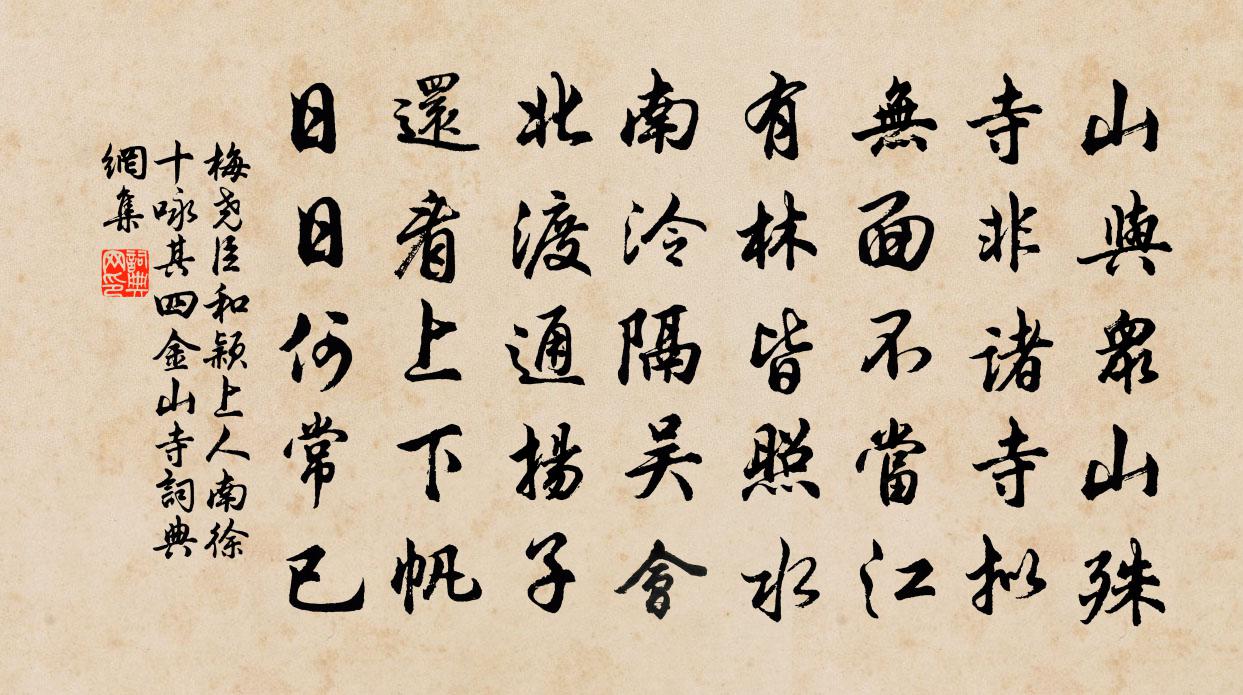 山與衆山殊
寺非諸寺擬
無面不當江
有林皆照水
南泠隔吴會
北渡通揚子
還看上下帆
日日何常已
梅堯臣和穎上人南徐
十咏其四金山寺詞典
網集
詞典
网印